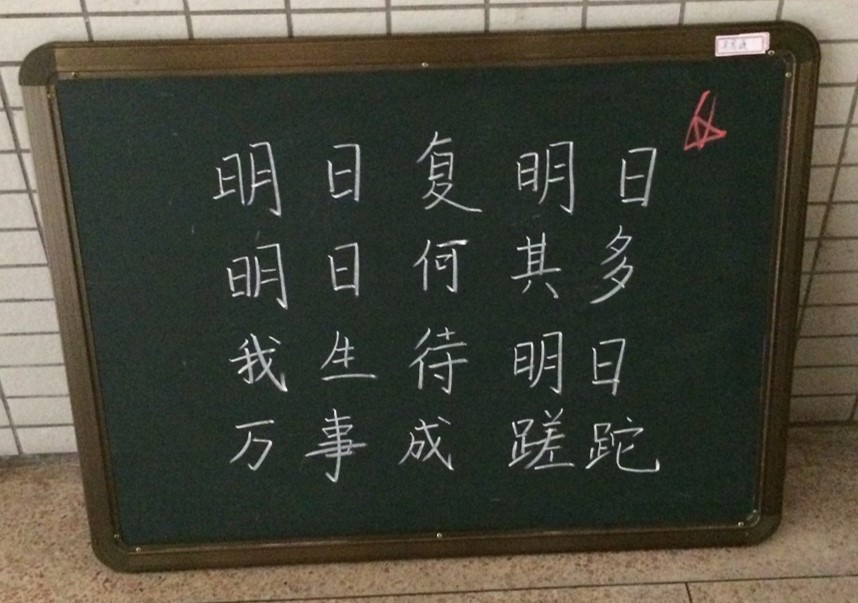 明日复明日
明日何其多
我生待明日
万事成蹉跎